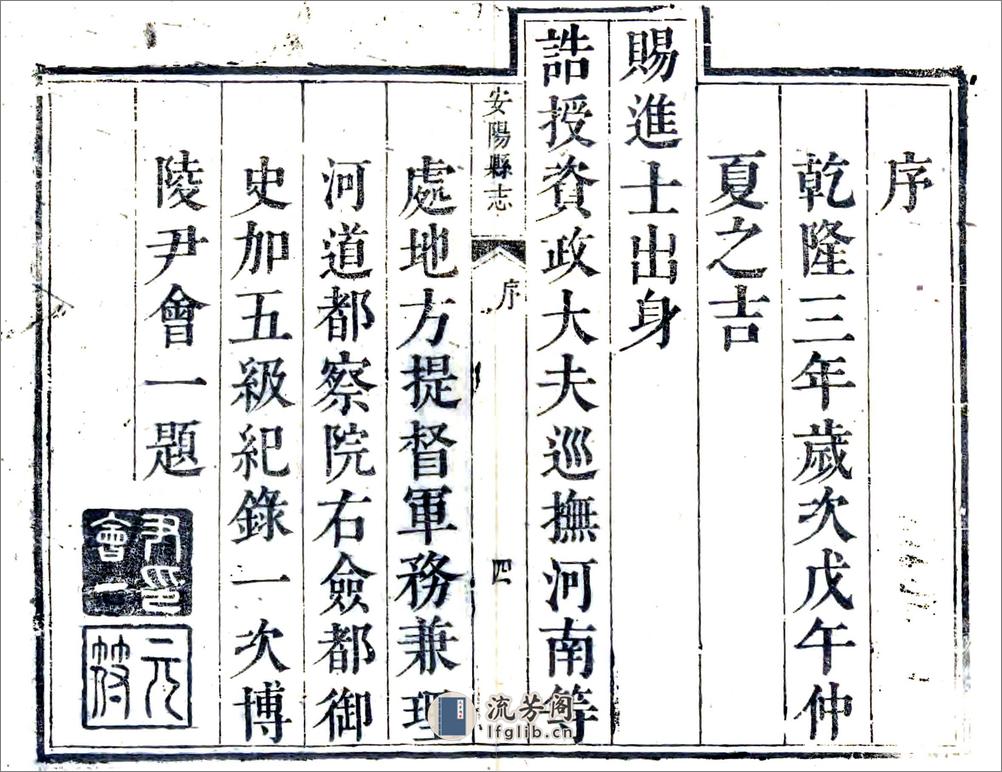 序
乾隆三年歲次戊午仲
夏之吉
賜進士出身
誥授資政大夫巡撫河南等
安陽縣志 序 四
處地方提督軍務兼理
河道都察院右僉都御
史加五級紀錄一次博
陵尹會一題
尹會一印
元孚
流芳阁
lfglib.cn